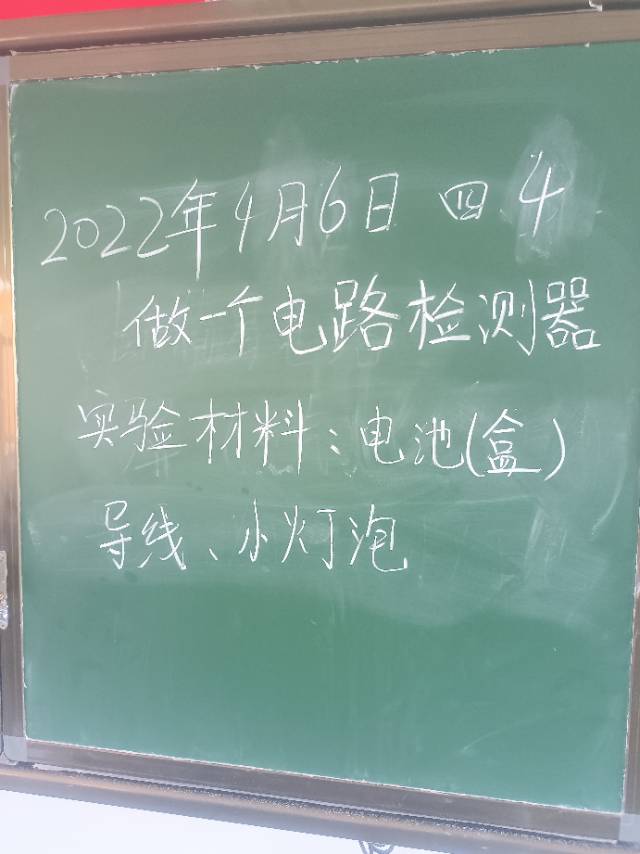 2022年4月6日 四4
做一个电路检测器
实验材料：电池(盒)
导线、小灯泡